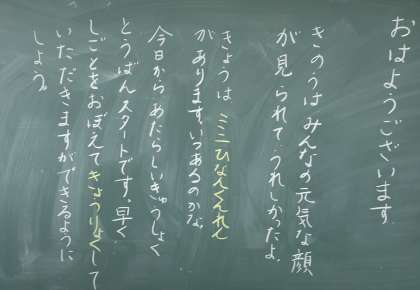 おはようございます
きのうはみんなの元気な顔
が見られてうれしかったよ。
きょうはミニひなんくんれん
があります。いつあるのかな。
今日からあたらしいきゅうしょく
とうばんスタートです。早く
しごとをおぼえてきょうりょくして
いただきますができるように
しよう。